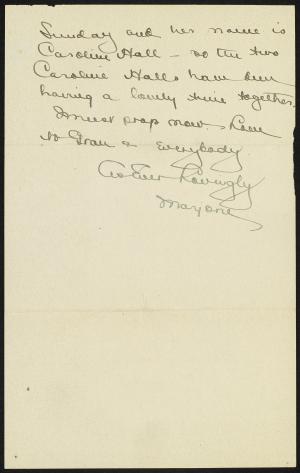 Sunday and her name is
Caroline Hall – so the two
Caroline Halls have been
having a lovely time together.
I must stop now. Love
to Gran & Everybody
As Ever Lovingly
Marjorie